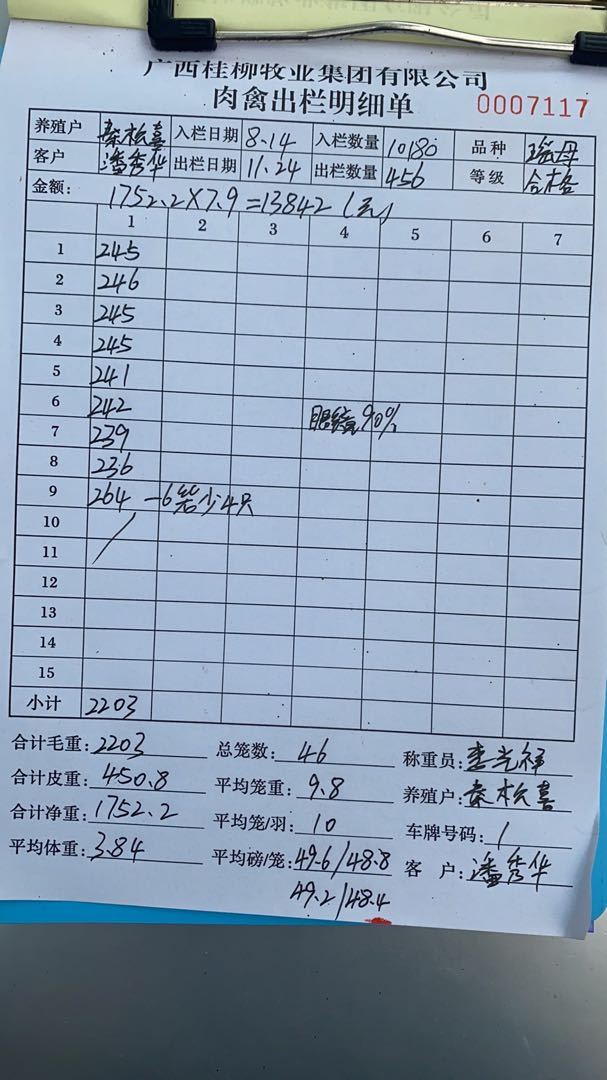 广西桂柳牧业集团有限公司
肉禽出栏明细单 0007117
养殖户 秦松喜 入栏日期 8.14 入栏数量 10180 品种 瑶母
客户 潘秀华 出栏日期 11.24 出栏数量 456 等级 合格
金额: 1752.2×7.9=13842(元)
1 2 3 4 5 6 7
1 245
2 246
3 245
4 245
5 241
6 242
7 239 眼 90%
8 236
9 264 -6笼少4只
10
11
12
13
14
15
小计 2203
合计毛重: 2203 总笼数: 46 称重员: 李光祥
合计皮重: 450.8 平均笼重: 9.8 养殖户: 秦松喜
合计净重: 1752.2 平均笼/羽: 10 车牌号码: /
平均体重: 3.84 平均磅/笼: 49.6/48.8 客 户: 潘秀华
49.2/48.4